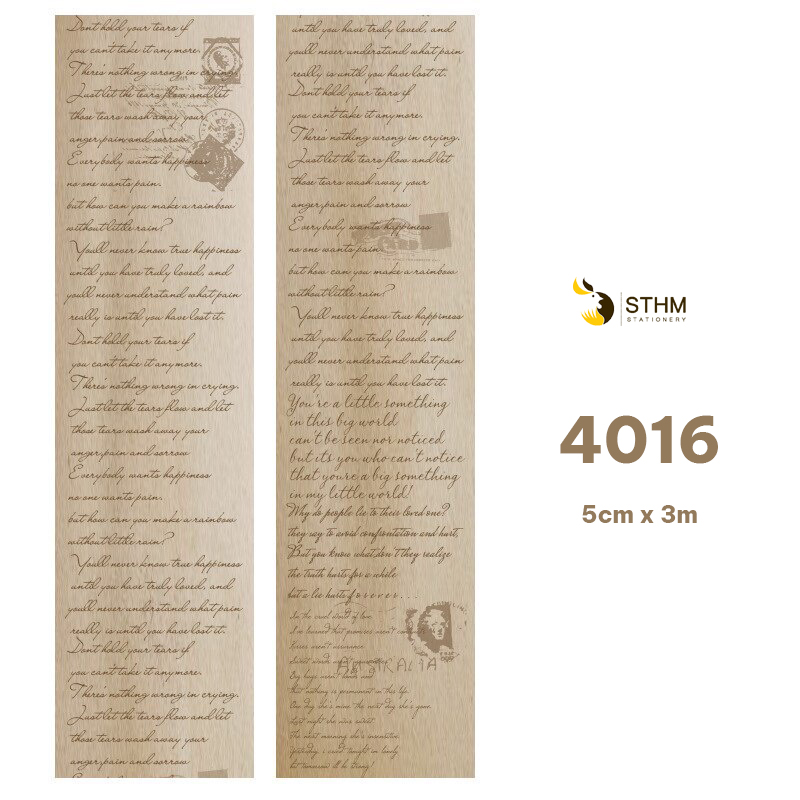 Don't hold your tears if
you can't take it anymore.
There's nothing wrong in crying.
Just let the tears flow and let
those tears wash away your
anger, pain and sorrow
Everybody wants happiness
no one wants pain.
but how can you make a rainbow
without little rain?
You'll never know true happiness
until you have truly loved, and
you'll never understand what pain
really is until you have lost it.
Don't hold your tears if
you can't take it anymore.
There's nothing wrong in crying.
Just let the tears flow and let
those tears wash away your
anger, pain and sorrow
Everybody wants happiness
no one wants pain.
but how can you make a rainbow
without little rain?
You'll never know true happiness
until you have truly loved, and
you'll never understand what pain
really is until you have lost it.
Don't hold your tears if
you can't take it anymore.
There's nothing wrong in crying.
Just let the tears flow and let
those tears wash away your
anger, pain and sorrow
until you have truly loved, and
you'll never understand what pain
really is until you have lost it.
Don't hold your tears if
you can't take it anymore.
There's nothing wrong in crying.
Just let the tears flow and let
those tears wash away your
anger, pain and sorrow
Everybody wants happiness
no one wants pain.
but how can you make a rainbow
without little rain?
You'll never know true happiness
until you have truly loved, and
you'll never understand what pain
really is until you have lost it.
You're a little something
in this big world
can't be seen nor noticed
but it's you who can't notice
that you're a big something
in my little world!
Why do people lie to their loved one?
they say to avoid confrontation and hurt,
But you know what don't they realize
the truth hurts for a while
but a lie hurts forever....
In the cruel world of love
I've learned that promises aren't
aren't assurance
Sweet words aren't
AUSTRALIA
Big hugs aren't
that nothing is permanent in this life.
One day she's mine the next day she's gone.
Last night she was sweet
The next morning she's
Yesterday I
but tomorrow I'll be strong!
STHM
STATIONERY
4016
5cm x 3m